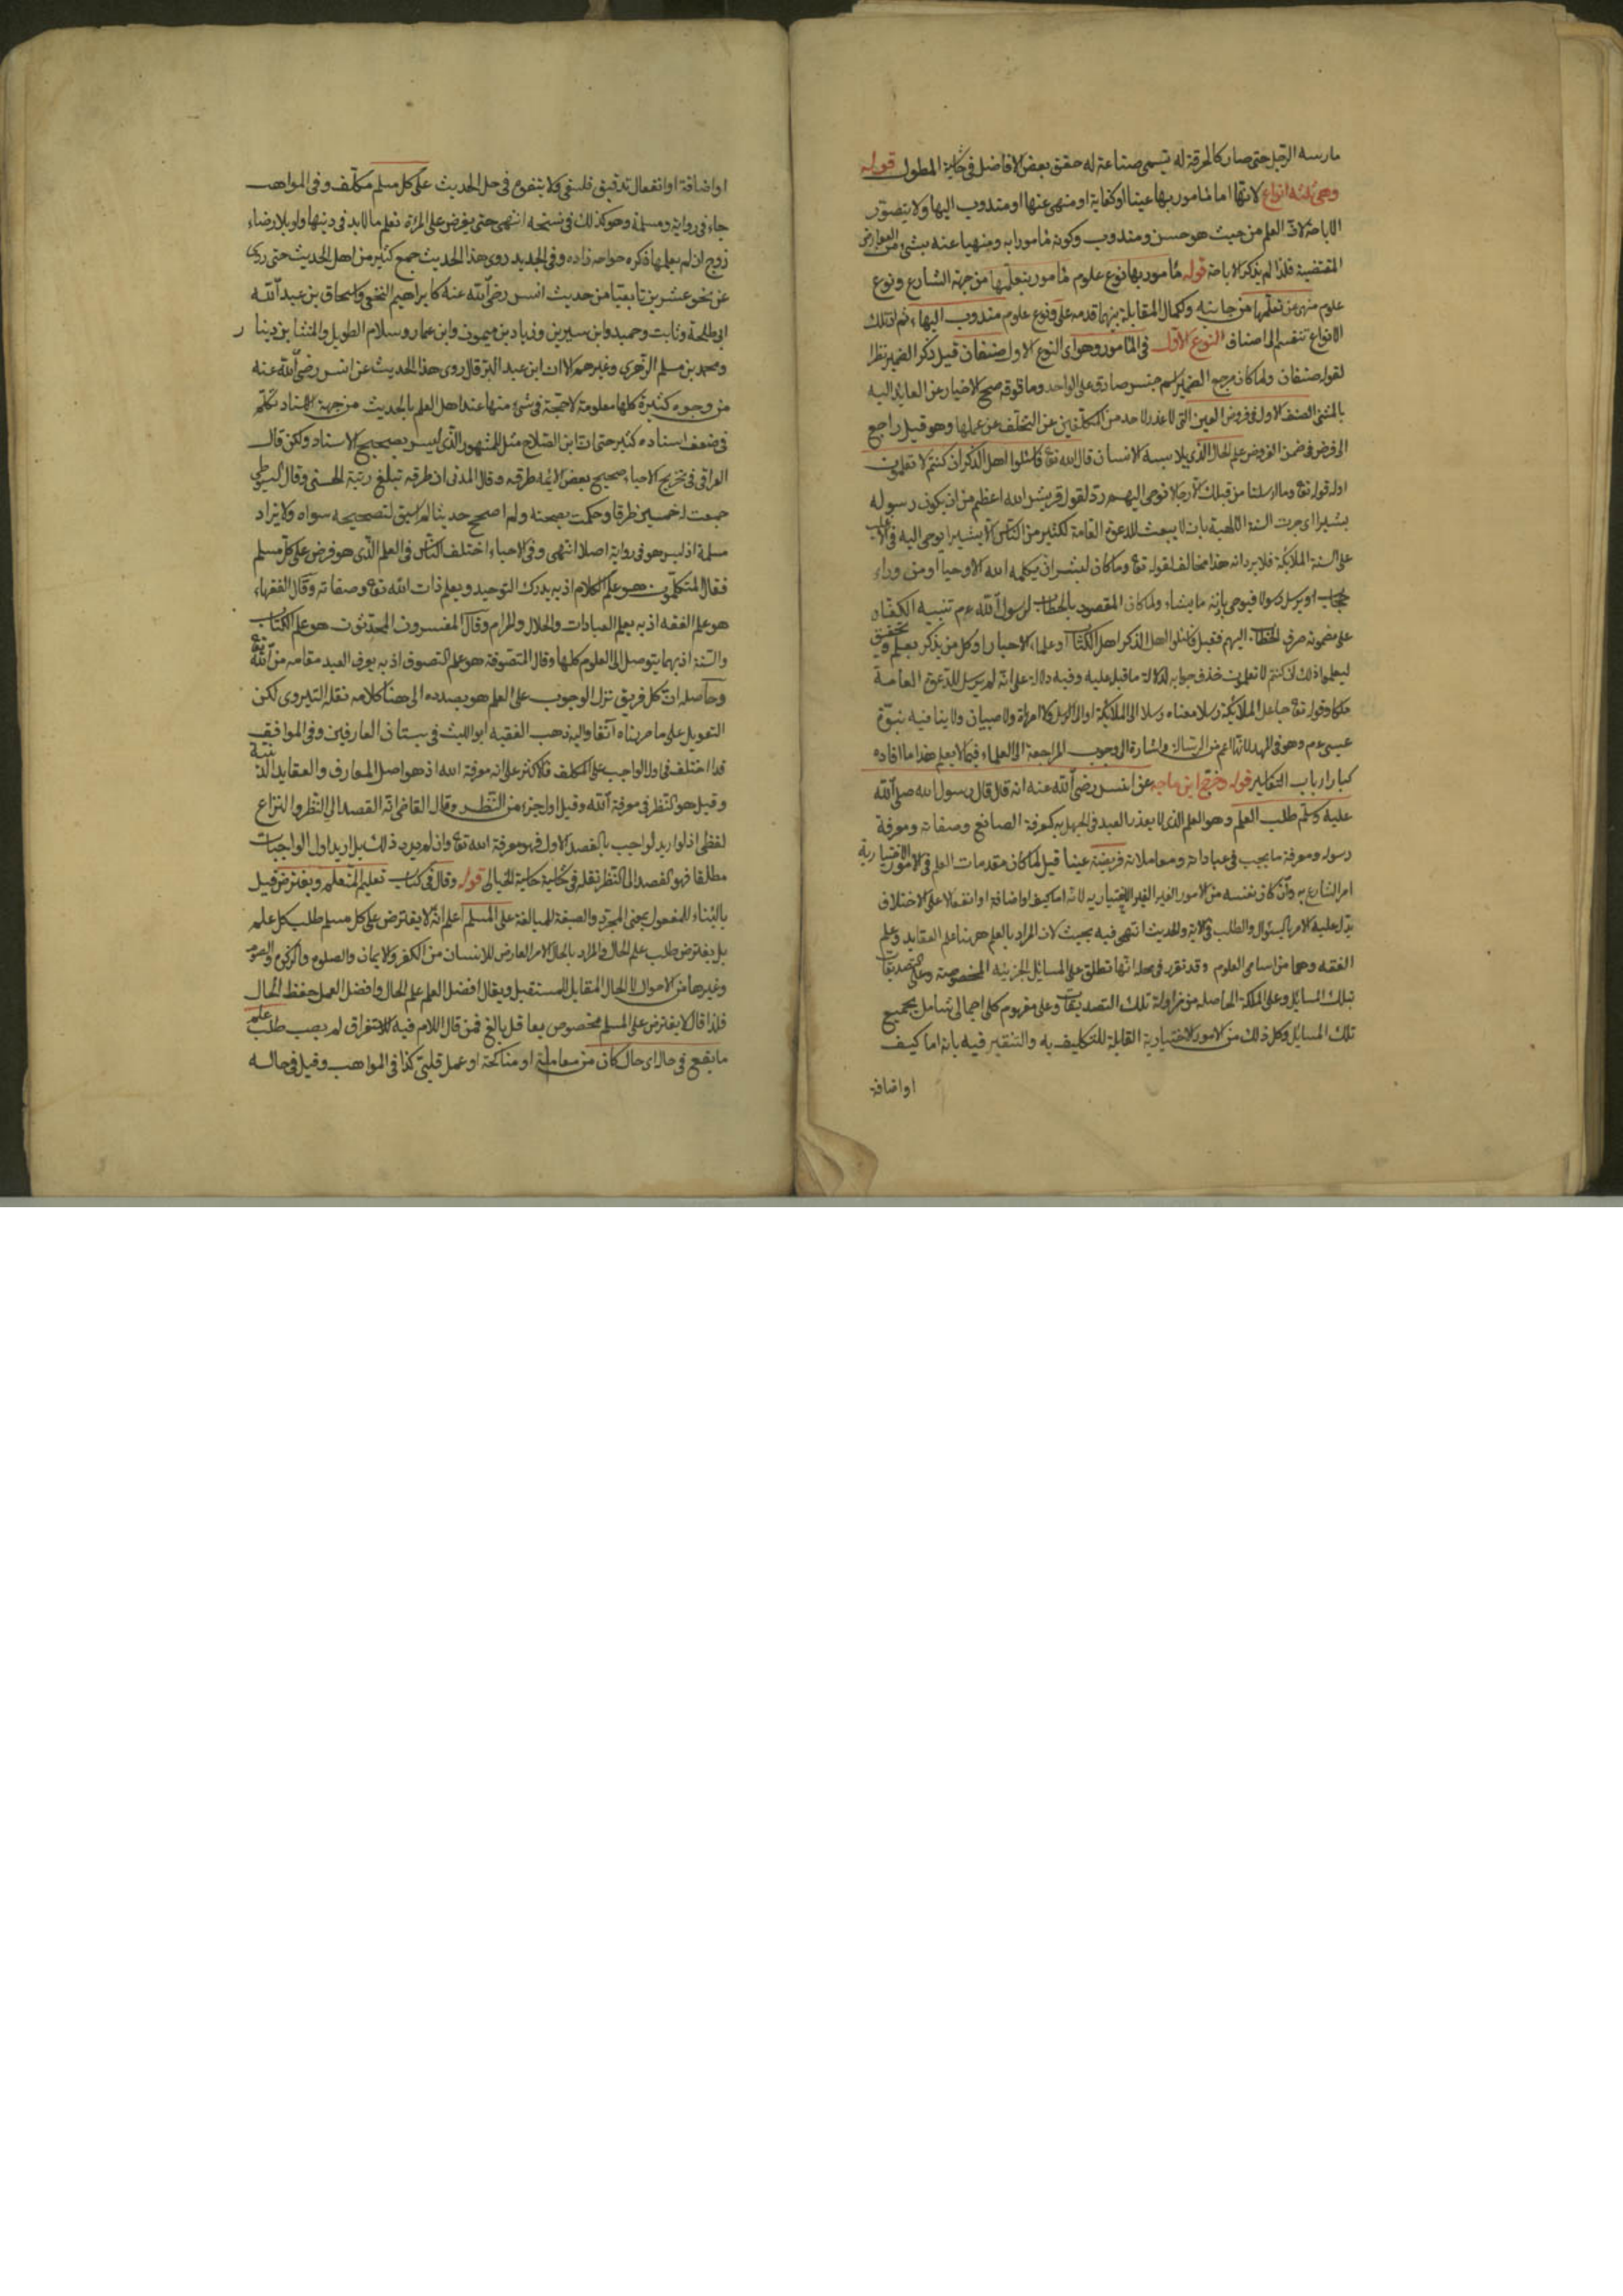 مارسه الرجل حتى صار كالحرفة له يسمى صناعة له حقق بعض الافاضل فى حاشية المطول قوله
وهى ثلثة انواع لانها اما مأمور بها عينا او كفاية او منهى عنها او مندوب اليها ولا يتصور
الاباحة لان العلم من حيث هو حسن ومندوب وكونه مأمورا به ومنهيا عنه بشئ من العوارض
المقتضية فلذا لم يذكر الاباحة قوله مأمور بها نوع علوم مأمور بتعلمها من جهة الشارع ونوع
علوم منهى عن تعلمها من جانبه ولكمال المقابلة بينهما قدمه على ونوع علوم مندوب اليها ثم ان تلك
الانواع تنقسم الى اصناف النوع الاول فى المأمور وهو اى النوع الاول صنفان قيل ذكر الضمير نظرا
لقوله صنفان ولما كان مرجع الضمير اسم جنس صادق على الواحد وما فوقه صح الاخبار عن العايد اليه
بالمثنى الصنف الاول فى فروض العين التى لا عذر لاحد من المكلفين عن التخلف عن عملها وهو قيل راجع
الى فرض فى ضمن الفروض علم الحال الذى يلابسه الانسان قال الله تع فاسئلوا اهل الذكر ان كنتم لا تعلمون
اوله قوله تع وما ارسلنا من قبلك الا رجالا نوحى اليهم رد لقول قريش الله اعظم من ان يكون رسوله
بشرا اى جرت السنة الالهية بان لا يبعث للدعوة العامة لكثير من الناس الا بشرا يوحى اليه فى الاغلب
على السنة الملائكة فلا يرد انه هذا مخالف لقوله تع وما كان لبشر ان يكلمه الله الا وحيا او من وراء
حجاب او يرسل رسولا فيوحى باذنه ما يشاء ولما كان المقصود بالخطاب لرسول الله عم تنبيه الكفار
على مضمونه صرف الخطاب اليهم فقيل فاسئلوا اهل الذكر اهل الكتاب او علماء الاحبار او كل من يذكر بعلم وتحقيق
ليعلموا ذلك ان كنتم لا تعلمون حذف جوابه لدلالة ما قبله عليه وفيه دلالة على انه لم يرسل للدعوة العامة
ملكا وقوله تع جاعل الملائكة رسلا معناه رسلا الى الملائكة او الى الرسل ولا امراة ولا صبيان ولا ينافيه نبوة
عيسى عم وهو فى المهد لانها اعم من الرسالة و اشارة الى وجوب المراجعة الى العلماء فيما لا يعلم هذا ما افاده
كبار ارباب التفاسير قوله وخرج ابن ماجه عن انس رضى الله عنه انه قال قال رسول الله صلى الله
عليه وسلم طلب العلم وهو العلم الذى لا يعذر العبد فى الجهل به كمعرفة الصانع وصفاته ومعرفة
رسوله ومعرفة ما يجب فى عباداته ومعاملاته فريضة عينا قيل لما كان مقدمات العلم فى الامور الاختيارية
امر الشارع به وان كان نفسه من الامور الغير الاختيارية لانه اما كيف او اضافة او انفعال على الاختلاف
يدل عليه الامر بالسؤال والطلب فى الاية والحديث انتهى فيه بحث لان المراد بالعلم ههنا علم العقايد وعلم
الفقه وهما من اسامى العلوم وقد تقرر فى محله انها تطلق على المسائل الجزئية المخصوصة وعلى التصديقات
بتلك المسايل وعلى الملكة الحاصلة من مزاولة تلك التصديقات وعلى مفهوم كلى اجمالى شامل بجميع
تلك المسايل وكل ذلك من الامور الاختيارية القابلة للتكليف به والتنقير فيه بانه اما كيف
او اضافة
او اضافة او انفعال تدقيق فلسفى ولا يتفوه فى حل الحديث على كل مسلم مكلف وفى المواهب
جاء فى رواية ومسلمة وهو كذلك فى نسخة انتهى حتى يفرض على المرئة تعلم ما لا بد فى دينها ولو بلا رضاء
زوج ان لم يعلمها ذكره خواجه زاده وفى الجديد روى هذا الحديث جمع كثير من اهل الحديث حتى روى
عن نحو عشرين تابعيا من حديث انس رضى الله عنه كابراهيم النخعى واسحاق بن عبد الله
ابى طلحة وثابت وحميد وابن سيرين وزياد بن ميمون وابن عمار وسلام الطويل والمثنا بن دينار
ومحمد بن مسلم الزهرى وغيرهم الا ان ابن عبد البر قال روى هذا الحديث عن انس رضى الله عنه
من وجوه كثيرة كلها معلومة لا حجة فى شئ منها عند اهل العلم بالحديث من جهة الاسناد تكلم
فى ضعف اسناده كثير حتى ان ابن الصلاح مثل للمشهور الذى ليس بصحيح الاسناد ولكن قال
العراقى فى تخريج الاحياء صحيح بعض الائمة طرقه وقال المدنى ان طرقه تبلغ رتبة الحسنى وقال السيوطى
جمعت له خمسين طرقا وحكمت بصحته ولم اصحح حديثا لم اسبق لتصحيحه سواه ولا يزاد
مسلمة اذ ليس هو فى رواية اصلا انتهى وفى الاحياء اختلف الناس فى العلم الذى هو فرض على كل مسلم
فقال المتكلمون هو علم الكلام اذ به يدرك التوحيد ويعلم ذات الله تع وصفاته وقال الفقهاء
هو علم الفقه اذ به يعلم العبادات والحلال والحرام وقال المفسرون المحدثون هو علم الكتاب
والسنة اذ بهما يتوصل الى العلوم كلها وقال المتصوفة هو علم التصوف اذ به يعرف العبد مقامه من الله تع
وحاصله ان كل فريق نزل الوجوب على العلم هو بصدده الى هنا كلامه نقله التيروى لكن
التعويل على ما مر بناه آنفا واليه ذهب الفقيه ابو الليث فى بستان العارفين وفى المواقف
قد اختلف فى اول الواجب على المكلف فالاكثر على انه معرفة الله اذ هو اصل المعارف والعقايد الدينية
وقيل هو النظر فى معرفة الله وقيل اول جزء من النظر وقال القاضى انه القصد الى النظر والنزاع
لفظى اذ لو اريد لواجب بالقصد الاول فهو معرفة الله تع وان لم يرد ذلك بل اريد اول الواجبات
مطلقا فهو القصد الى النظر نقله فى حاشية الخيالى قوله وقال فى كتاب تعليم المتعلم ويفترض قيل
بالبناء للمفعول بمعنى المجرد والصيغة للمبالغة على المسلم اعلم انه لا يفترض على كل مسلم طلب كل علم
بل يفترض طلب علم الحال والمراد بالحال الامر العارض للانسان من الكفر والايمان والصلوة والزكوة والصوم
وغيرها من الاحوال لا الحال المقابل للمستقبل ويقال افضل العلم علم الحال وافضل العمل حفظ الحال
فلذا قال لا يفترض على المسلم مخصوص بعاقل بالغ فمن قال اللام فيه للاستغراق لم يصب طلب علم
ما يقع فى حال اى حال كان من معاملة او مناكحة او عمل قلبى كذا فى المواهب وقيل فى حاله